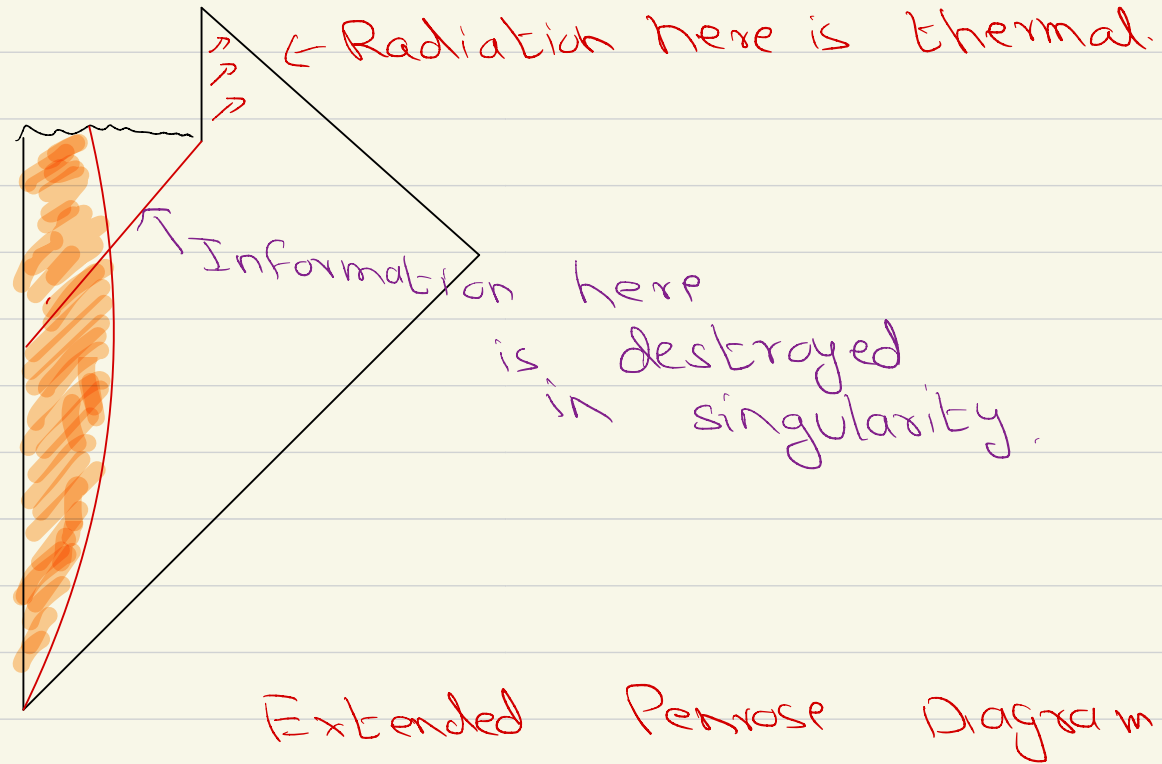 Radiation here is thermal.
Information here
is destroyed
in singularity.
Extended Penrose Diagram